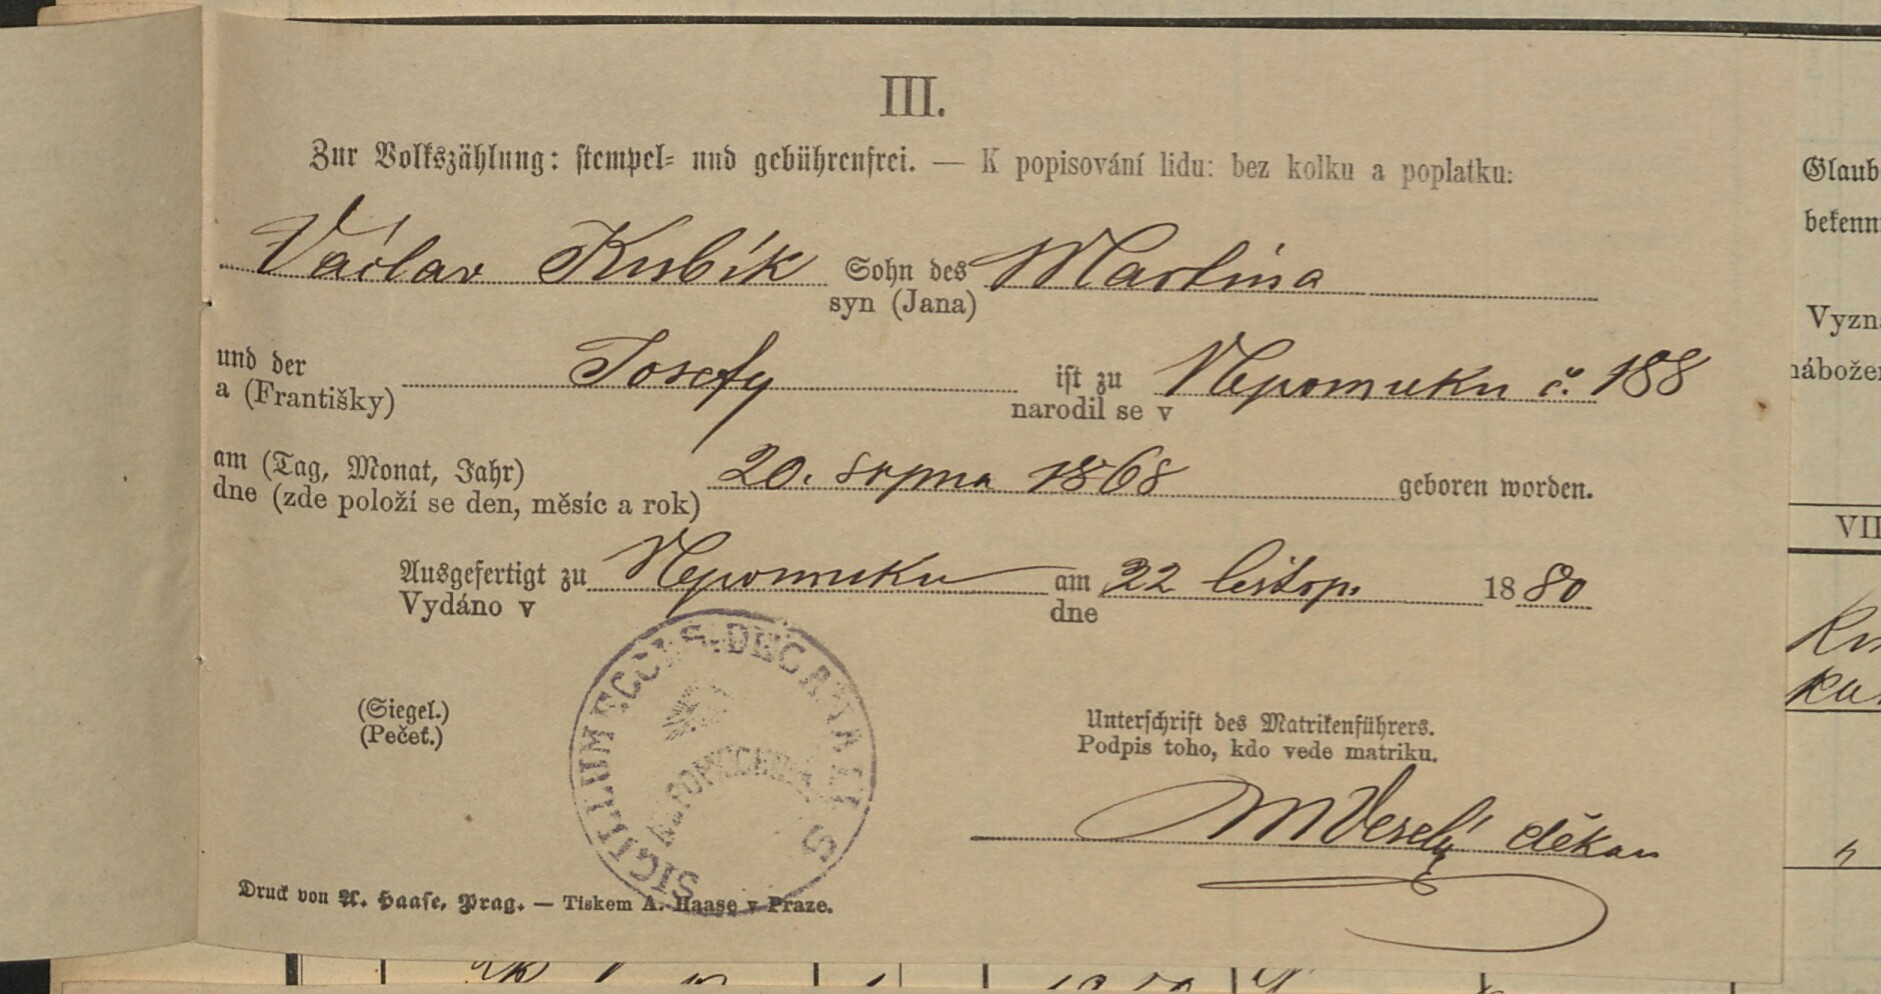 III.
Zur Volkszählung: stempel- und gebührenfrei. — K popisování lidu: bez kolku a poplatku:
Václav Kubík Sohn des Martina
syn (Jana)
und der Josefy ist zu Nepomuku č. 188
a (Františky) narodil se v
am (Tag, Monat, Jahr) 20. srpna 1868 geboren worden.
dne (zde položí se den, měsíc a rok)
Ausgefertigt zu Nepomuku am 22 listop. 1880
Vydáno v dne
(Siegel.)
(Pečeť.)
SIGILLUM ECCLES. DECANALIS
Unterschrift des Matrikenführers.
Podpis toho, kdo vede matriku.
M Veselý děkan
Druck von A. Haase, Prag. — Tiskem A. Haase v Praze.
Glaub
bekenn
Vyzn
nábože
VII